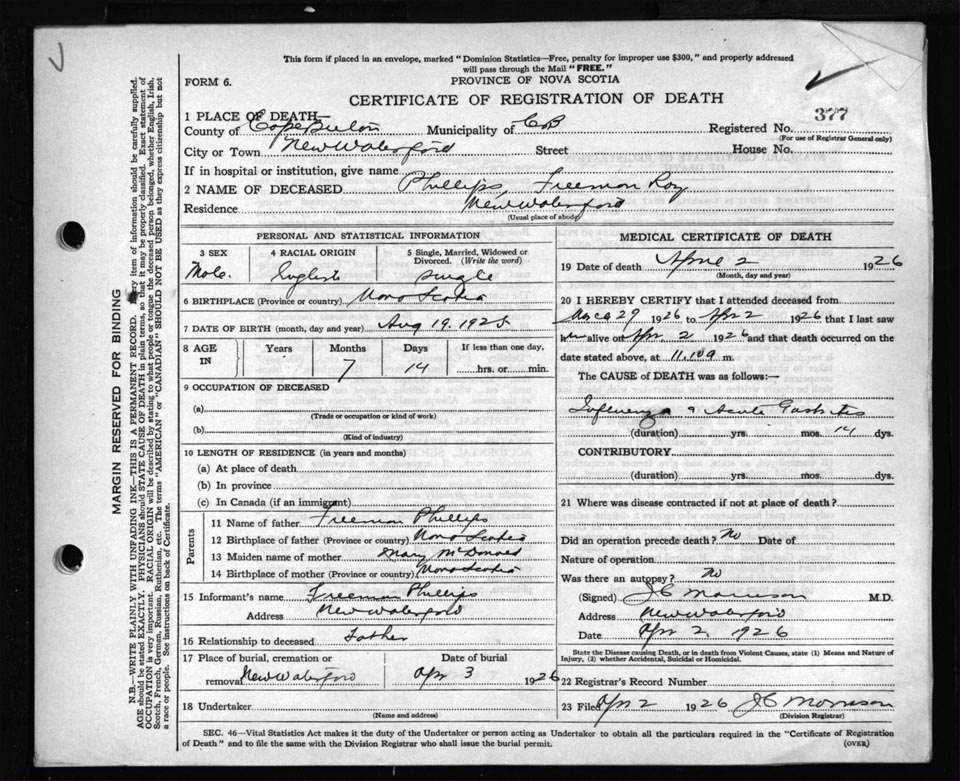 This form if placed in an envelope, marked "Dominion Statistics—Free, penalty for improper use $300," and properly addressed
will pass through the Mail "FREE."
FORM 6.
PROVINCE OF NOVA SCOTIA
CERTIFICATE OF REGISTRATION OF DEATH
377
1 PLACE OF DEATH—
County of Cape Breton Municipality of CB Registered No.
(For use of Registrar General only)
City or Town New Waterford Street House No.
If in hospital or institution, give name
2 NAME OF DECEASED Phillips, Freeman Roy
Residence New Waterford
(Usual place of abode)
PERSONAL AND STATISTICAL INFORMATION
3 SEX 4 RACIAL ORIGIN 5 Single, Married, Widowed or Divorced. (Write the word)
Male. English Single
6 BIRTHPLACE (Province or country) Nova Scotia
7 DATE OF BIRTH (month, day and year) Aug 19. 1925
8 AGE IN Years Months Days If less than one day,
7 14 hrs. or min.
9 OCCUPATION OF DECEASED
(a)
(Trade or occupation or kind of work)
(b)
(Kind of industry)
10 LENGTH OF RESIDENCE (in years and months)
(a) At place of death
(b) In province
(c) In Canada (if an immigrant)
Parents
11 Name of father Freeman Phillips
12 Birthplace of father (Province or country) Nova Scotia
13 Maiden name of mother Mary McDonald
14 Birthplace of mother (Province or country) Nova Scotia
15 Informant's name Freeman Phillips
Address New Waterford
16 Relationship to deceased Father
17 Place of burial, cremation or Date of burial
removal New Waterford Apr 3 1926
18 Undertaker
(Name and address)
MEDICAL CERTIFICATE OF DEATH
19 Date of death April 2 1926
(Month, day and year)
20 I HEREBY CERTIFY that I attended deceased from
March 29 1926 to Apr 2 1926 that I last saw
him alive on Apr. 2 1926 and that death occurred on the
date stated above, at 11.10 a m.
The CAUSE of DEATH was as follows:—
Influenza & Acute Gastritis
(duration) yrs. mos. 14 dys.
CONTRIBUTORY
(duration) yrs. mos. dys.
21 Where was disease contracted if not at place of death?
Did an operation precede death? No Date of
Nature of operation
Was there an autopsy? No
(Signed) J C Morrison M.D.
Address New Waterford
Date Apr 2. 1926
State the Disease causing Death, or in death from Violent Causes, state (1) Means and Nature of
Injury, (2) whether Accidental, Suicidal or Homicidal.
22 Registrar's Record Number
23 Filed Apr 2 1926 J C Morrison
(Division Registrar)
SEC. 46—Vital Statistics Act makes it the duty of the Undertaker or person acting as Undertaker to obtain all the particulars required in the "Certificate of Registration
of Death" and to file the same with the Division Registrar who shall issue the burial permit.
(OVER)
MARGIN RESERVED FOR BINDING
N.B.—WRITE PLAINLY WITH UNFADING INK—THIS IS A PERMANENT RECORD. Every item of information should be carefully supplied.
AGE should be stated EXACTLY. PHYSICIANS should STATE CAUSE OF DEATH in plain terms, so that it may be properly classified. Exact statement of
OCCUPATION is very important. RACIAL ORIGIN will be described by stating to what people or tongue the deceased person belonged, whether English, Irish,
Scotch, French, German, Russian, Ruthenian, etc. The terms "AMERICAN" or "CANADIAN" SHOULD NOT BE USED as they express citizenship but not
a race or people. See instructions on back of Certificate.